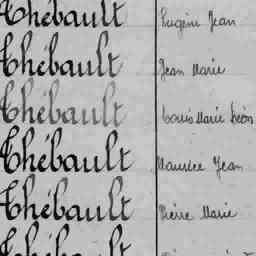 Thébault Eugène Jean
Thébault Jean Marie
Thébault Louis Marie Léon
Thébault Maurice Jean
Thébault Pierre Marie
Thébault